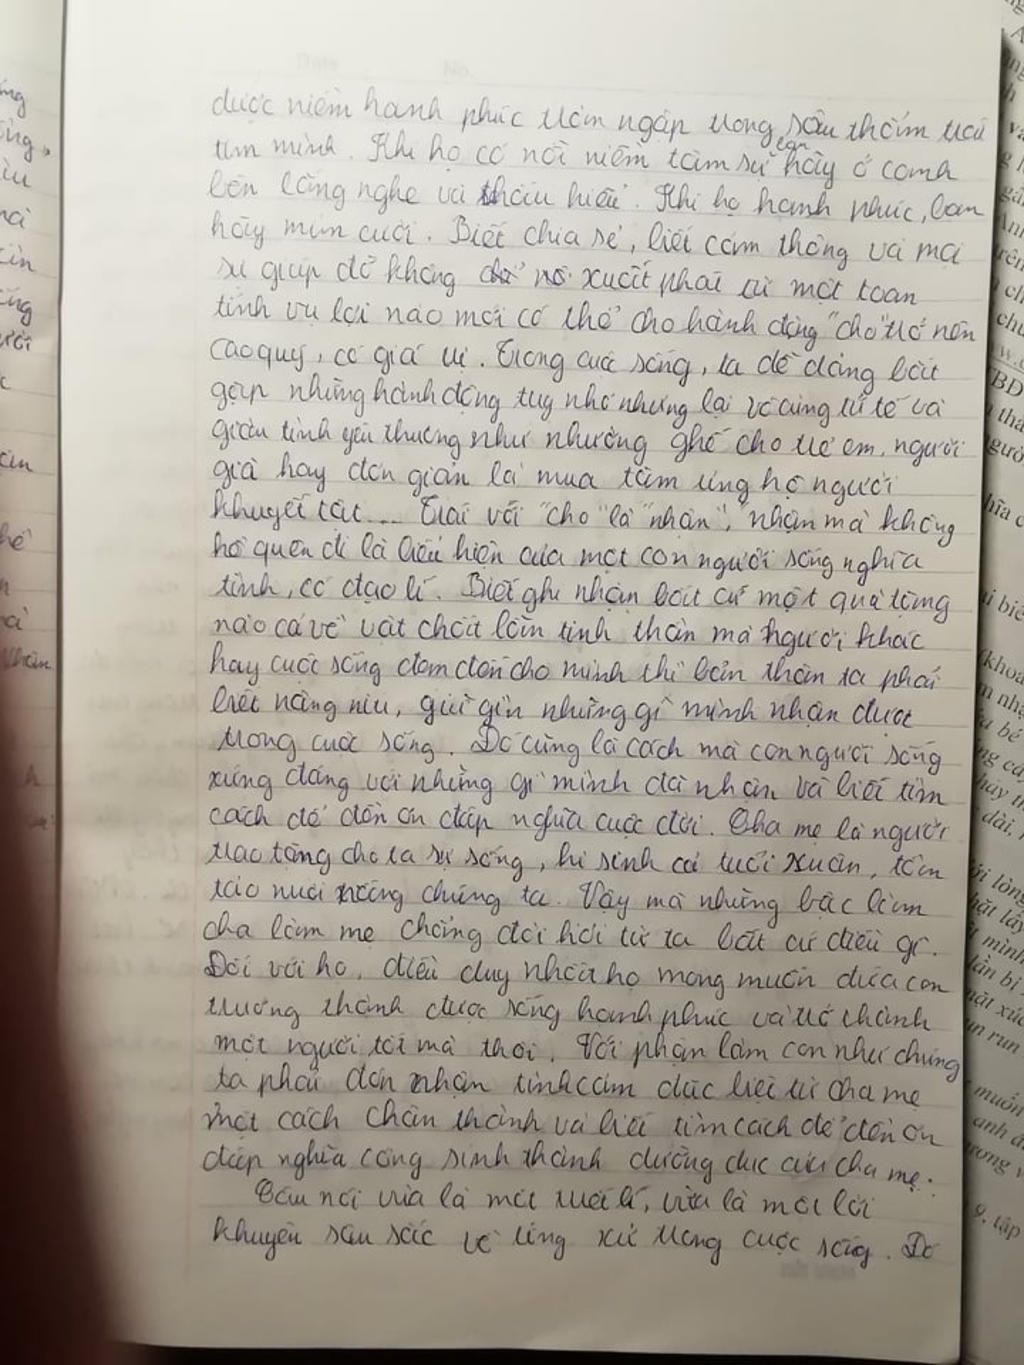 được niềm hạnh phúc tràn ngập trong sâu thẳm trái
tim mình. Khi họ có nỗi niềm tâm sự bạn hãy ở cạnh
bên lắng nghe và thấu hiểu. Khi họ hạnh phúc, bạn
hãy mỉm cười. Biết chia sẻ, biết cảm thông và mọi
sự giúp đỡ không xuất phát từ một toan
tính vụ lợi nào mới có thể cho hành động "cho" trở nên
cao quý, có giá trị. Trong cuộc sống, ta dễ dàng bắt
gặp những hành động tuy nhỏ nhưng lại vô cùng tử tế và
giàu tình yêu thương như nhường ghế cho trẻ em, người
già hay đơn giản là mua tăm ủng hộ người
khuyết tật.... Trái với "cho" là "nhận", "nhận mà không
hề quên đi là biểu hiện của một con người sống nghĩa
tình, có đạo lí. Biết ghi nhận bất cứ một quà tặng
nào cả về vật chất lẫn tinh thần mà người khác
hay cuộc sống đem đến cho mình thì bản thân ta phải
biết nâng niu, giữ gìn những gì mình nhận được
trong cuộc sống. Đó cũng là cách mà con người sống
xứng đáng với những gì mình đã nhận và biết tìm
cách để đền ơn đáp nghĩa cuộc đời. Cha mẹ là người
trao tặng cho ta sự sống, hi sinh cả tuổi xuân, tần
tảo nuôi nấng chúng ta. Vậy mà những bậc làm
cha làm mẹ chẳng đòi hỏi từ ta bất cứ điều gì.
Đối với họ, điều duy nhất họ mong muốn đứa con
trưởng thành được sống hạnh phúc và trở thành
một người tốt mà thôi. Với phận làm con như chúng
ta phải đón nhận tình cảm đặc biệt từ cha mẹ
một cách chân thành và biết tìm cách để đền ơn
đáp nghĩa công sinh thành dưỡng dục của cha mẹ.
Câu nói vừa là một triết lí, vừa là một lời
khuyên sâu sắc về ứng xử trong cuộc sống. Đó